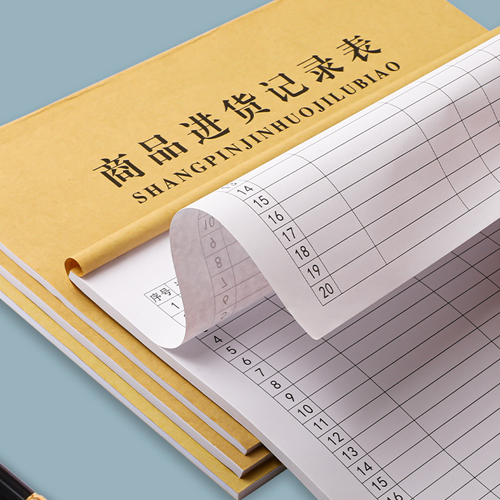 商品进货记录表
SHANGPINJINHUOJILUBIAO
14
15
16
17
18
19
20
序号
1
4
5
6
7
8
9
10
11
12
13
14
15
16